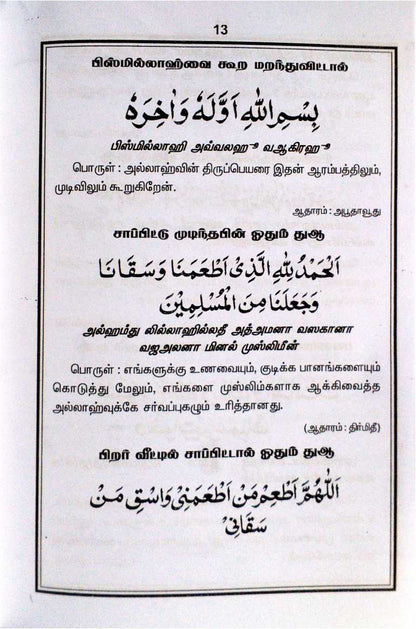 13
பிஸ்மில்லாஹ்வை கூற மறந்துவிட்டால்
بِسْمِ اللهِ اَوَّلَهُ وَاٰخِرَهُ
பிஸ்மில்லாஹி அவ்வலஹூ வஆகிரஹூ
பொருள் : அல்லாஹ்வின் திருப்பெயரை இதன் ஆரம்பத்திலும்,
முடிவிலும் கூறுகிறேன்.
ஆதாரம் : அபூதாவூது
சாப்பிட்டு முடிந்தபின் ஓதும் துஆ
اَلْحَمْدُ لِلّٰهِ الَّذِىْ اَطْعَمَنَا وَسَقَانَا
وَجَعَلَنَا مِنَ الْمُسْلِمِيْنَ
அல்ஹம்து லில்லாஹில்லதீ அத்அமனா வஸகானா
வஜஅலனா மினல் முஸ்லிமீன்
பொருள் : எங்களுக்கு உணவையும், குடிக்க பானங்களையும்
கொடுத்து மேலும், எங்களை முஸ்லிம்களாக ஆக்கிவைத்த
அல்லாஹ்வுக்கே சர்வப்புகழும் உரித்தானது.
(ஆதாரம் : திர்மிதீ)
பிறர் வீட்டில் சாப்பிட்டால் ஓதும் துஆ
اَللّٰهُمَّ اَطْعِمْ مَنْ اَطْعَمَنِىْ وَاسْقِ مَنْ
سَقَانِىْ